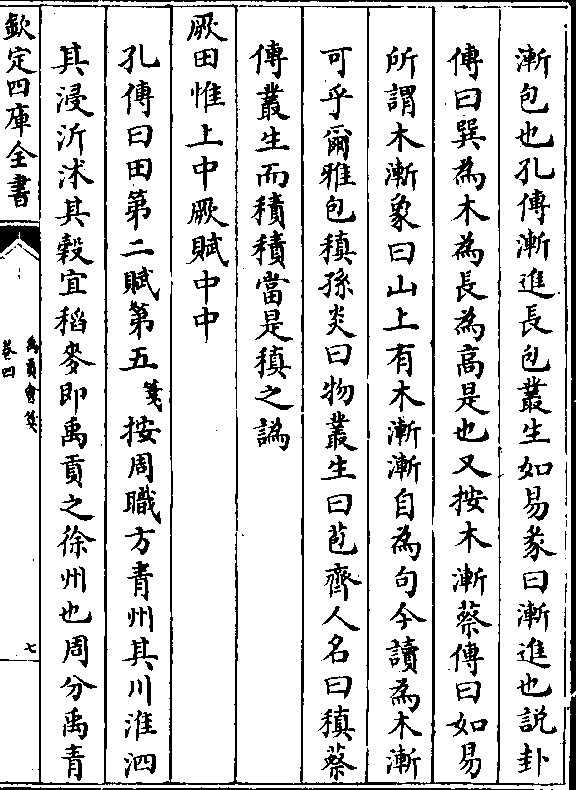 漸包也孔傳漸進長包叢生如易彖曰漸進也説卦
傳曰巽為木為長為高是也又按木漸蔡傳曰如易
所謂木漸象曰山上有木漸漸自為句今讀為木漸
可乎爾雅包稹孫炎曰物叢生曰苞齊人名曰稹蔡
傳叢生而積積當是稹之譌
厥田惟上中厥賦中中
孔傳曰田第二賦第五箋按周職方青州其川淮泗
其浸沂沭其穀宜稻麥即禹貢之徐州也周分禹青
欽定四庫全書
禹貢會箋
卷四
七